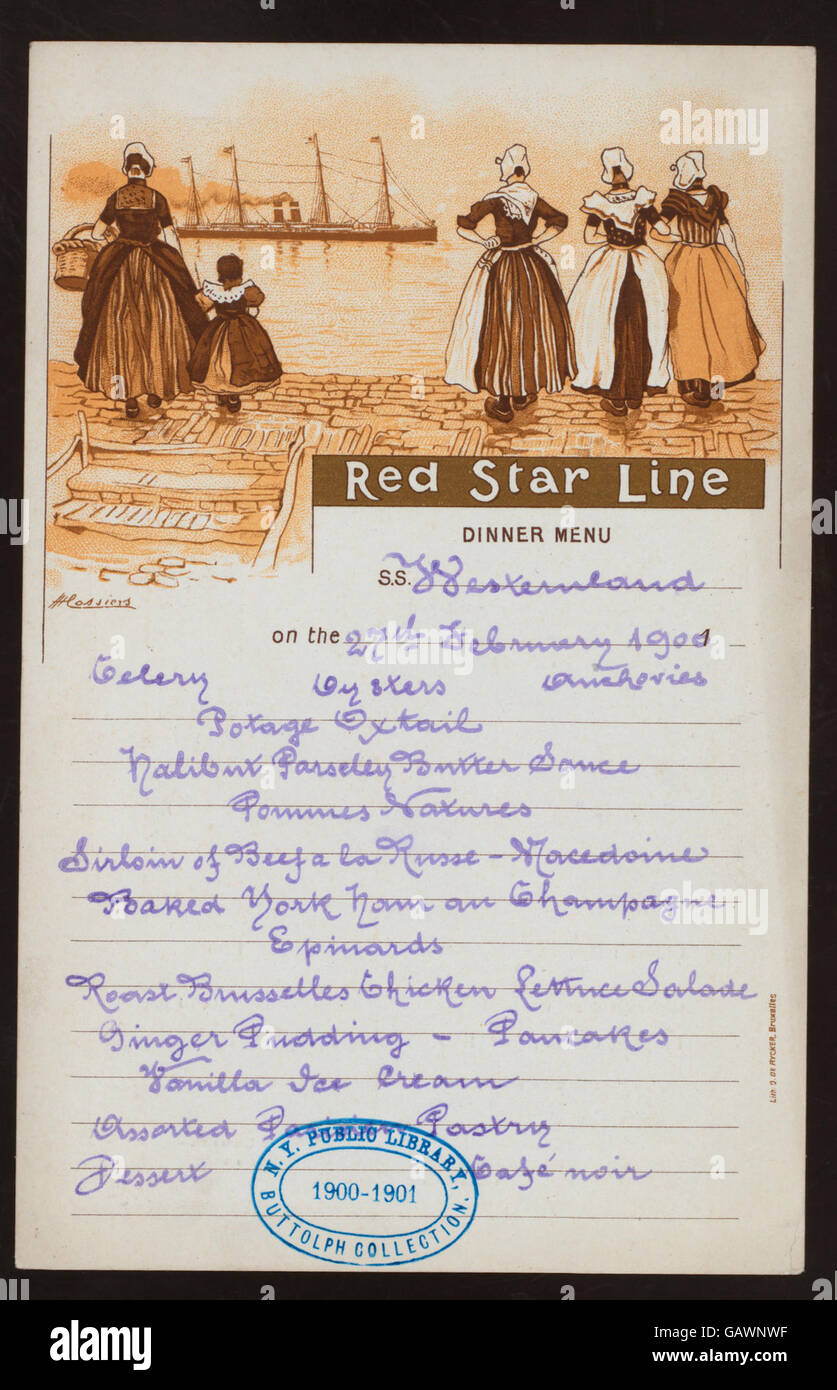 Red Star Line
DINNER MENU
S.S. Westernland
on the 27th February 1901
Celery Oysters Anchovies
Potage Oxtail
Halibut Parseley Butter Sauce
Pommes Natures
Sirloin of Beef a la Russe - Macedoine
Baked York Ham au Champagne
Epinards
Roast Brusselles Chicken Lettuce Salade
Ginger Pudding - Pancakes
Vanilla Ice Cream
Assorted Parisian Pastry
Dessert Café noir
HCassiers
Lith. O. DE RYCKER, Bruxelles
N.Y. PUBLIC LIBRARY,
1900-1901
BUTTOLPH COLLECTION.
a
a
a
a
alamy
a
a
a
alamy stock photo
GAWNWF
www.alamy.com